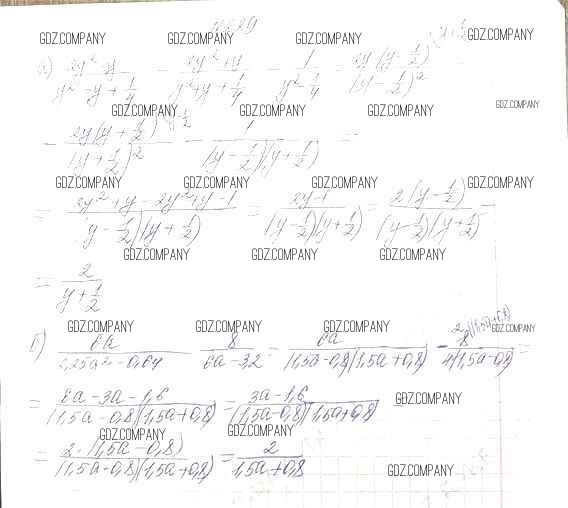 GDZ.COMPANY GDZ.COMPANY GDZ.COMPANY GDZ.COMPANY
а) (2y² - y)/(y² - y + 1/4) - (2y² + y)/(y² + y + 1/4) - 1/(y² - 1/4) = 2y(y - 1/2)/(y - 1/2)² -
GDZ.COMPANY GDZ.COMPANY GDZ.COMPANY GDZ.COMPANY
- 2y(y + 1/2)/(y + 1/2)² - 1/((y - 1/2)(y + 1/2)) =
GDZ.COMPANY GDZ.COMPANY GDZ.COMPANY GDZ.COMPANY
= (2y² + y - 2y² + y - 1)/((y - 1/2)(y + 1/2)) = (2y - 1)/((y - 1/2)(y + 1/2)) = 2(y - 1/2)/((y - 1/2)(y + 1/2))
GDZ.COMPANY GDZ.COMPANY GDZ.COMPANY
= 2/(y + 1/2)
GDZ.COMPANY GDZ.COMPANY GDZ.COMPANY GDZ.COMPANY
б) 6a/(2,25a² - 0,64) - 8/(6a - 3,2) = 6a/((1,5a - 0,8)(1,5a + 0,8)) - 8/(4(1,5a - 0,8)) =
= (6a - 3a - 1,6)/((1,5a - 0,8)(1,5a + 0,8)) = (3a - 1,6)/((1,5a - 0,8)(1,5a + 0,8)) =
GDZ.COMPANY
GDZ.COMPANY GDZ.COMPANY
= 2·(1,5a - 0,8)/((1,5a - 0,8)(1,5a + 0,8)) = 2/(1,5a + 0,8)
GDZ.COMPANY